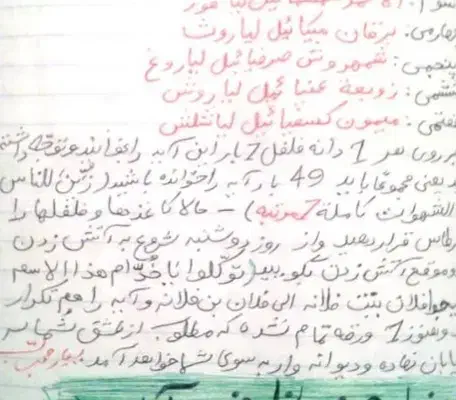 چهارمی: برقان میکائیل لیاروث
پنجمی: شمهروش صرفیائیل لیاروغ
ششمی: زوبعة عنیائیل لیاروش
هفتمی: میمون کسفیائیل لیاشلش
بر روی هر 1 دانه فلفل 7 بار این آیه را بخوانید و توجه داشته
ید یعنی مجموعا باید 49 بار آیه را خوانده باشید (زین للناس
الشهوات کاملة 7 مرتبه) – حالا کاغذها و فلفلها را
قرار دهید و از روز دوشنبه شروع به آتش زدن
و موقع آتش زدن بگویید (توکلوا یا خدام هذا الاسم
فلان بنت فلانه الی فلان بن فلانه و آیه را هم تکرار
و هنوز 1 ورقه تمام نشده که مطلوب از عشق شما سر به
بابان نهاده و دیوانه وار به سوی شما خواهد آمد.